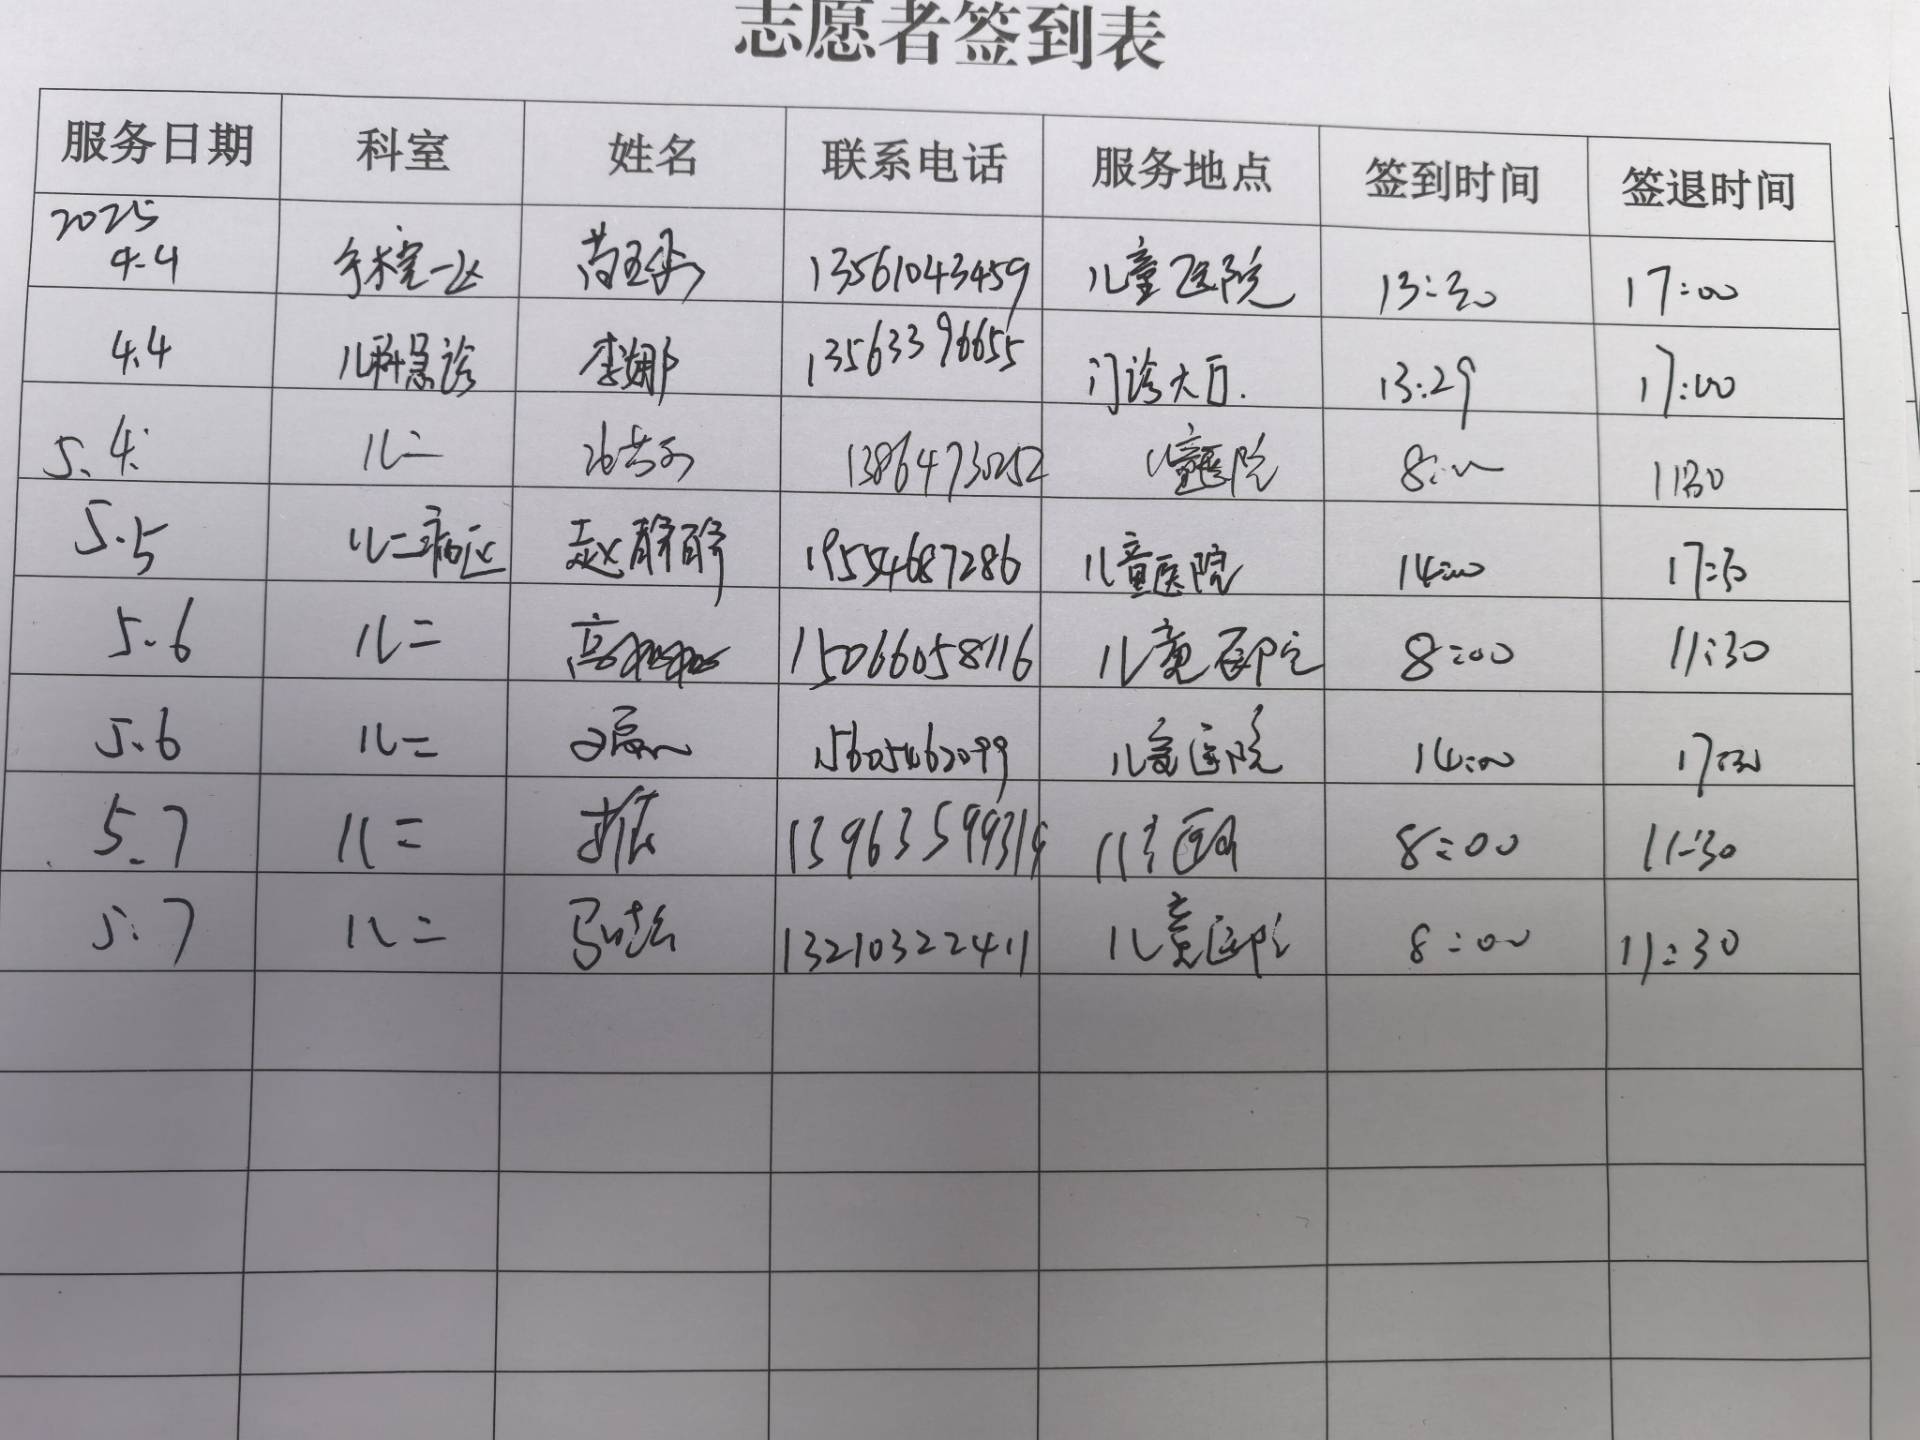 志愿者签到表
服务日期 科室 姓名 联系电话 服务地点 签到时间 签退时间
2025
4.4 手术室一区 13561043459 儿童医院 13:30 17:00
4.4 儿科急诊 李娜 13563396655 门诊大厅. 13:29 17:00
5.4. 儿二 13864730252 儿童医院 8:00 1130
5.5 儿二病区 赵静静 19554687286 儿童医院 14:00 17:30
5.6 儿二 高 15066058116 儿童医院 8:00 11:30
5.6 儿二 15605462099 儿童医院 14:00 17:30
5.7 儿二 儿童医院 8:00 11:30
5.7 儿二 马 13210322411 儿童医院 8:00 11:30